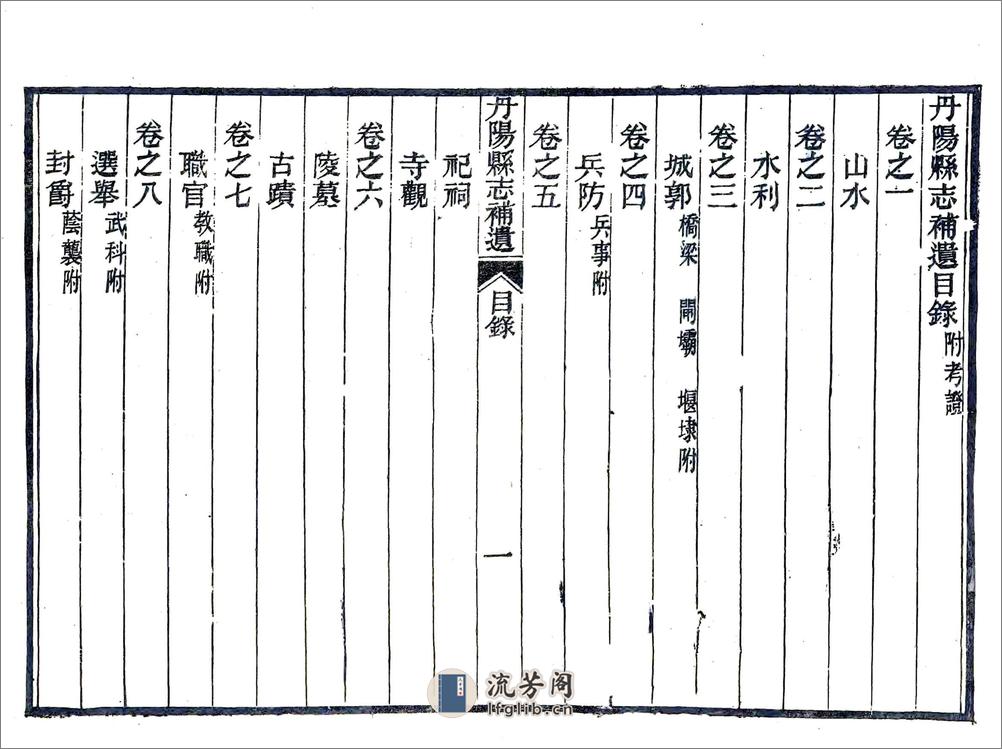 丹陽縣志補遺目錄 附考證
卷之一
山水
卷之二
水利
卷之三
城郭 橋梁 閘壩 堰埭附
卷之四
兵防 兵事附
卷之五
丹陽縣志補遺 目錄 一
祀祠
寺觀
卷之六
陵墓
古蹟
卷之七
職官 教職附
卷之八
選舉 武科附
封爵 蔭襲附
流芳阁
lfglib.cn